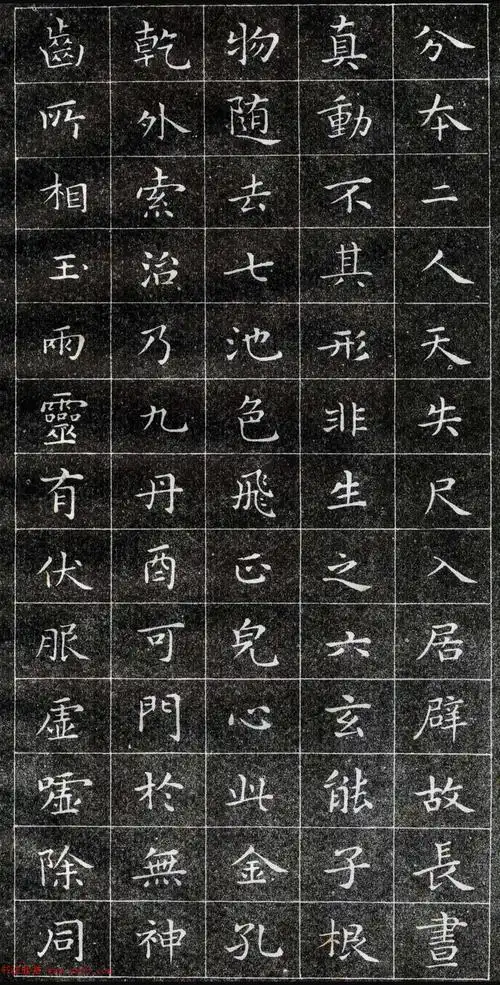 分本二人天失尺入居臂故長晝
真動不其形非生之六玄能子根
物随去七池色飛正皃心此金孔
乾外索治乃九丹酉可門於無神
齒所相玉雨靈有伏服虚嘘除同